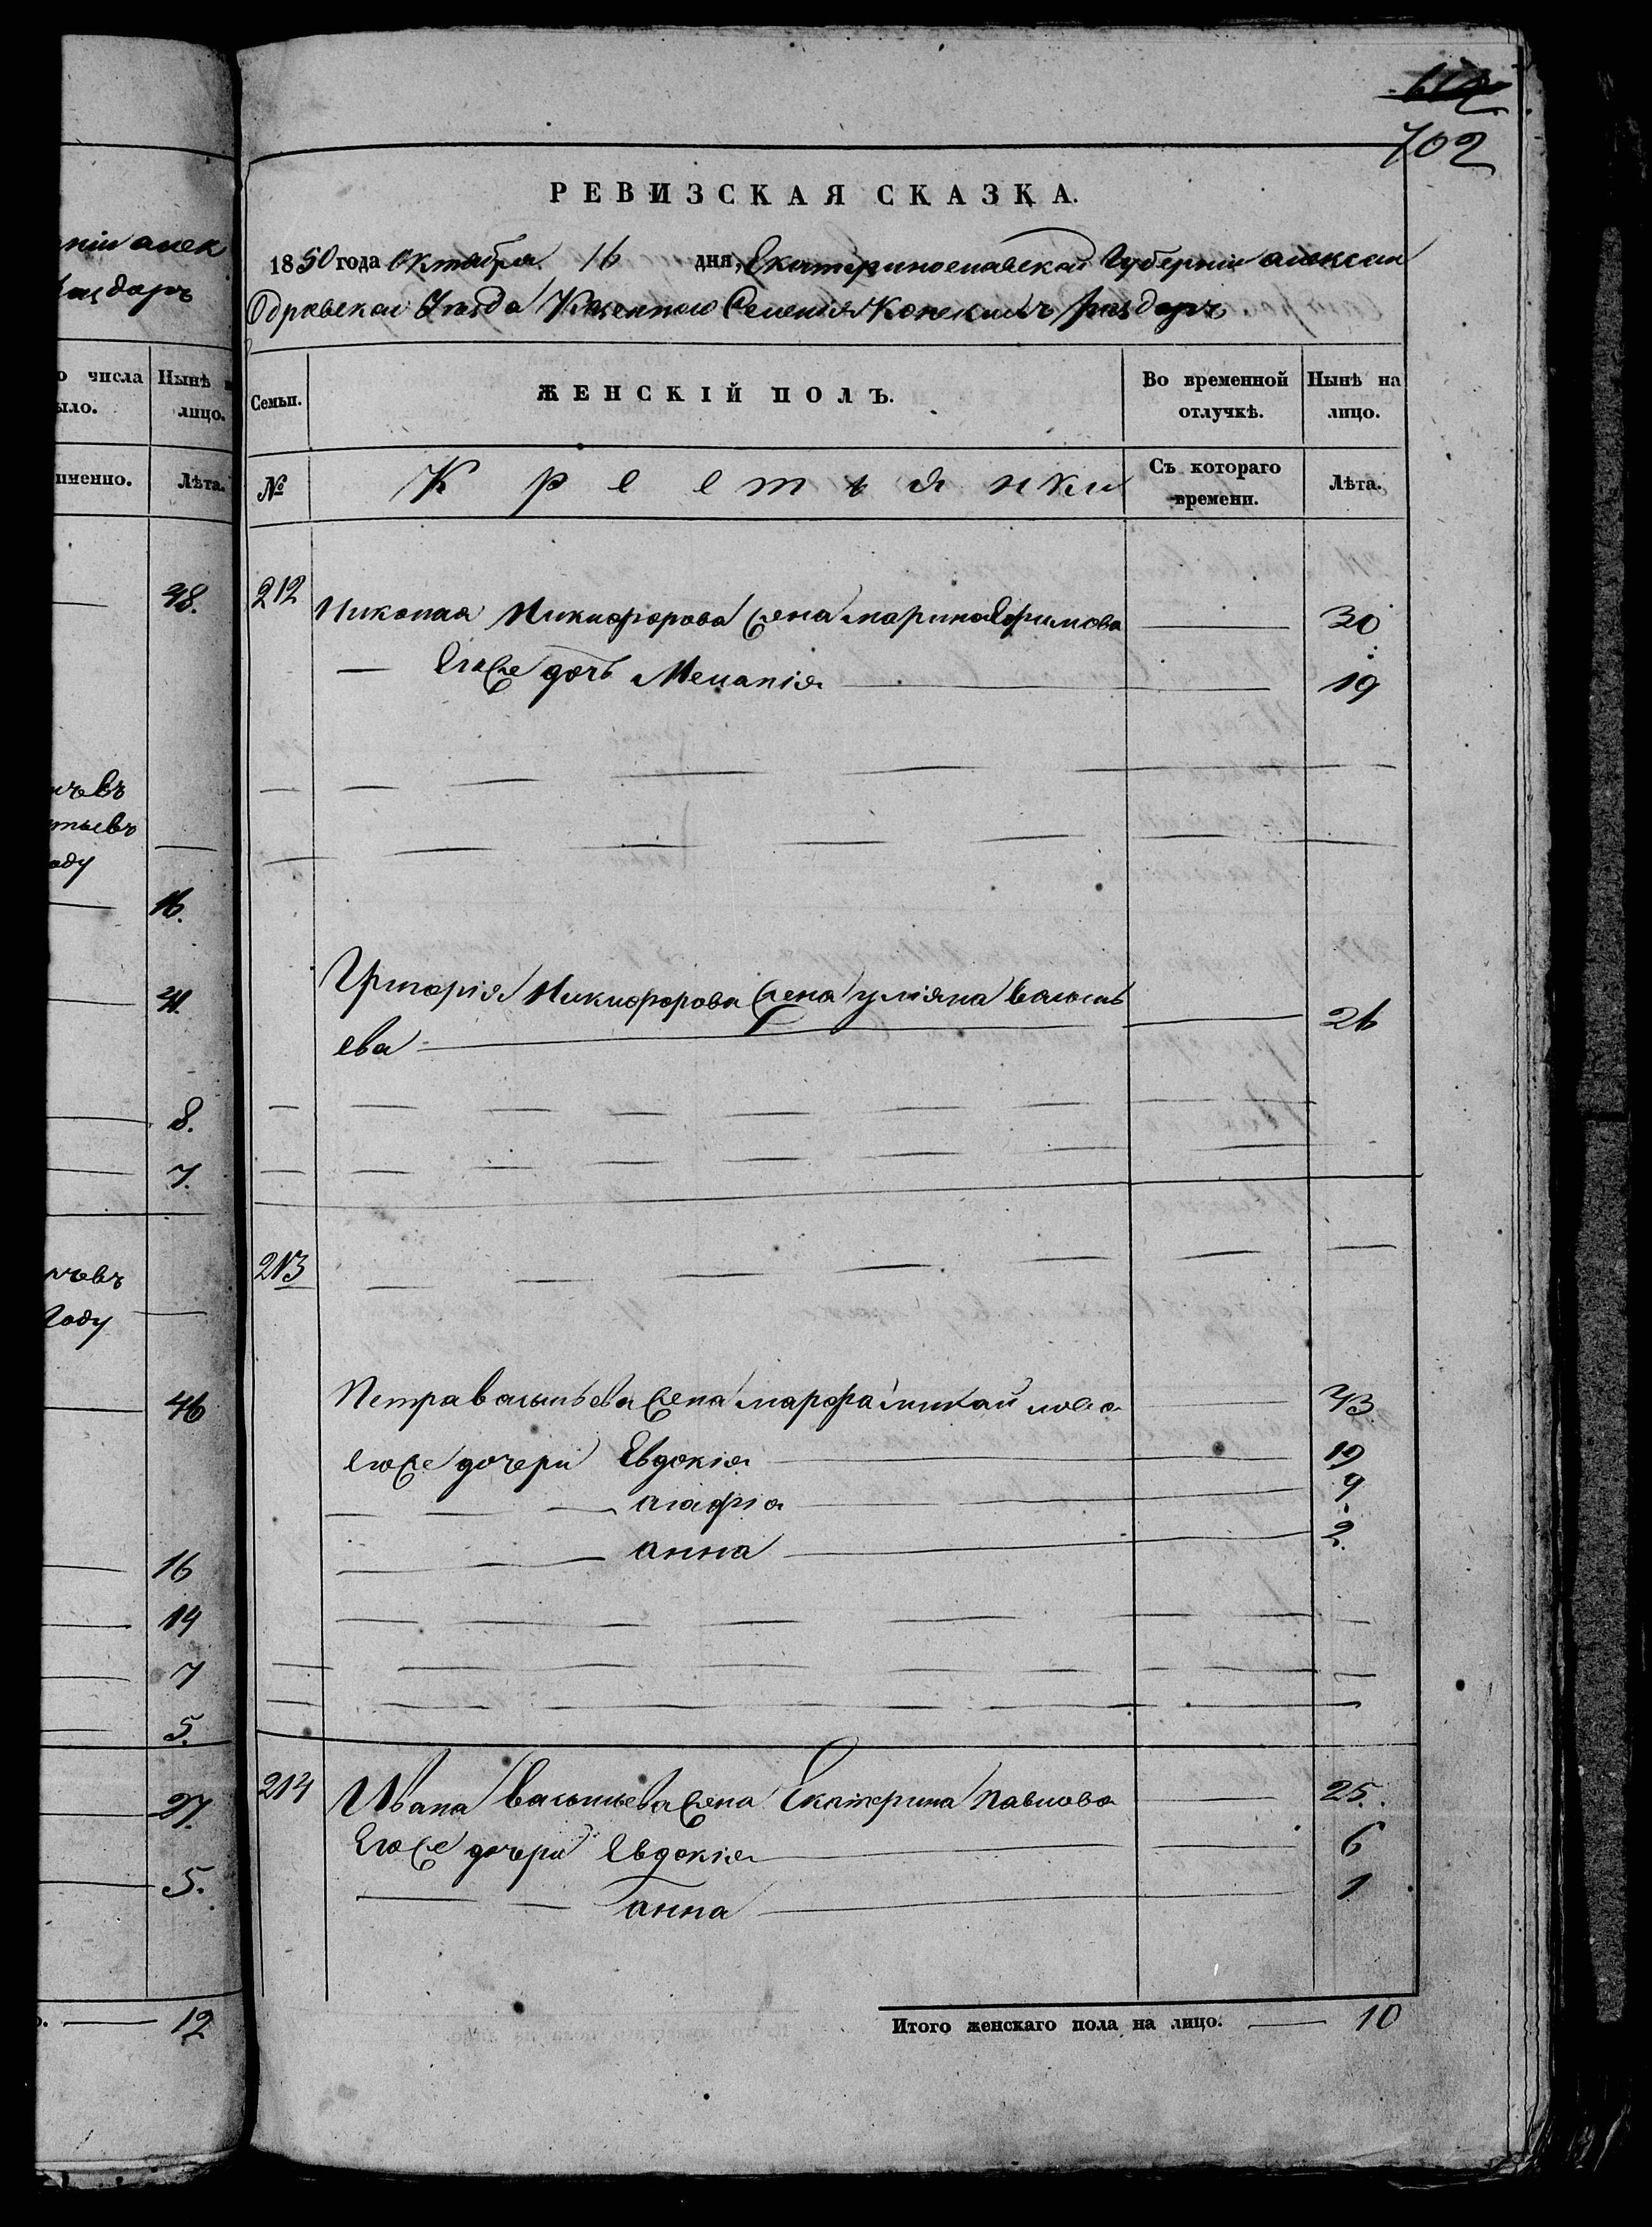 702
РЕВИЗСКАЯ СКАЗКА.
1850 года Октября 16 дня, Екатеринославской Губернiи алексан
дровскаго Уезда Казенного Селения Конскихъ раздоръ
Семьи.
ЖЕНСКIЙ ПОЛЪ.
Во временной отлучкѣ.
Нынѣ на лицо.
№
Крестьянки
Съ котораго времени.
Лѣта.
212 Николая Никифорова жена марина Ефимова 30
Егоже дочь Меланiя 19
Григорiя Никифорова жена улiяна василь
ева 26
213
Петра васильева жена марфа михайлова 43
егоже дочери Евдокiя 19
агафiя 9
анна 2.
214 Ивана васильева жена Екатерина павлова 25.
Егоже дочери Евдокiя 6
анна 1
Итого женскаго пола на лицо. 10
нiи алек
раздоръ
о числа
ыло.
Нынѣ
лицо.
именно.
Лѣта.
48.
оду
16.
8.
7.
Году
46
16
14
7
5.
27.
5.
12